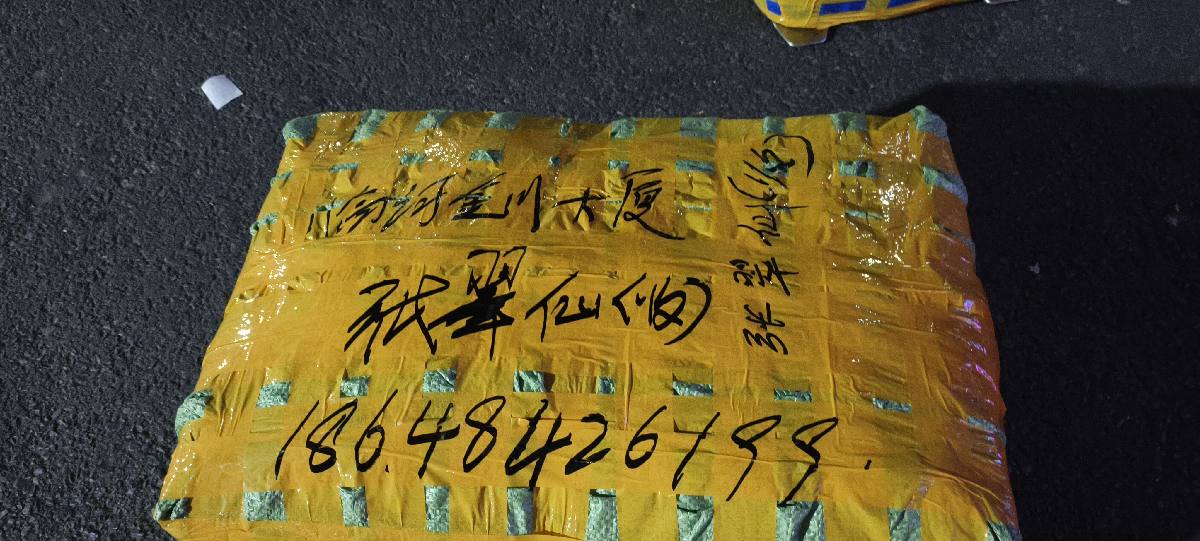 临河金川大厦
张翠仙(收)
18648426199.
张翠仙(收)